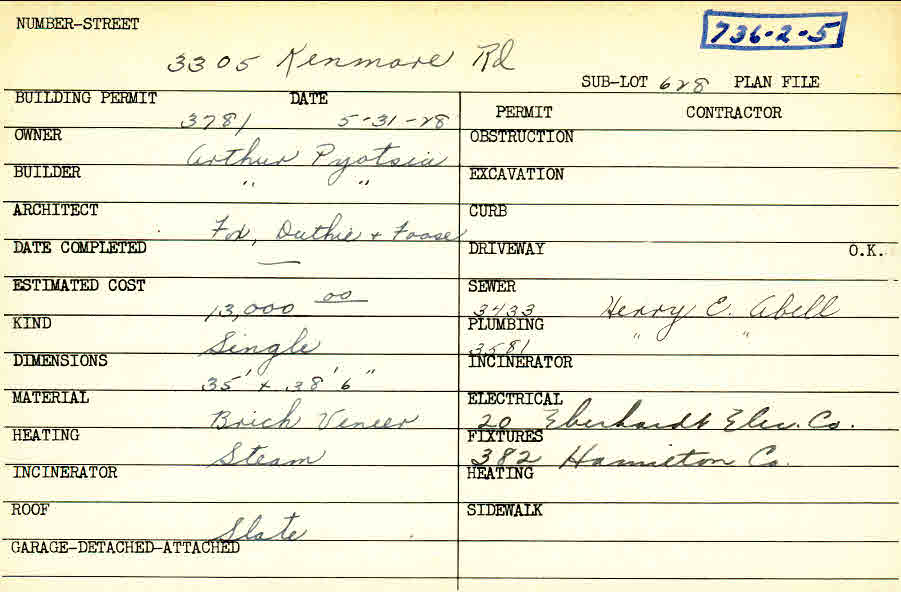 NUMBER-STREET
736-2-5
3305 Kenmore Rd
SUB-LOT 628 PLAN FILE
BUILDING PERMIT DATE
3781 5-31-28
PERMIT CONTRACTOR
OWNER
Arthur Pyotsia
OBSTRUCTION
BUILDER
" "
EXCAVATION
ARCHITECT
Fox, Duthie + Foose
CURB
DATE COMPLETED
—
DRIVEWAY O.K.
ESTIMATED COST
13,000 00
SEWER
3433 Henry E. Abell
KIND
Single
PLUMBING
3581 " "
DIMENSIONS
35' x 38' 6"
INCINERATOR
MATERIAL
Brick Veneer
ELECTRICAL
20 Eberhardt Elec. Co.
HEATING
Steam
FIXTURES
382 Hamilton Co.
INCINERATOR
HEATING
ROOF
Slate
SIDEWALK
GARAGE-DETACHED-ATTACHED